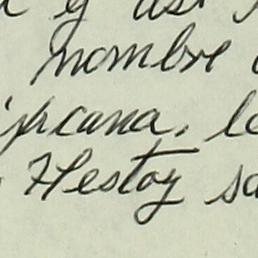 y asi
nombre
cana, le
Hestoy sa